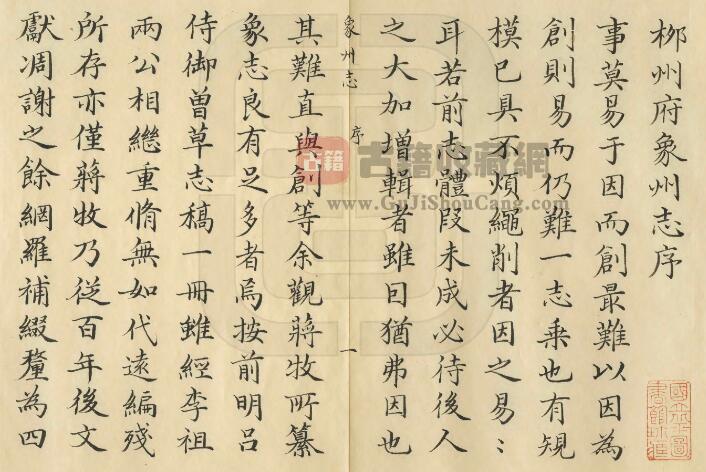 柳州府象州志序
事莫易于因而創最難以因為
創則易而仍難一志乘也有䂓
模已具不煩繩削者因之易〻
耳若前志體叚未成必待後人
之大加增輯者雖曰猶弗因也
象州志 序 一
其難直與創等余觀蔣牧所纂
象志良有足多者焉按前明呂
侍御曽草志稿一冊雖經李祖
兩公相繼重脩無如代遠編殘
所存亦僅蔣牧乃從百年後文
獻凋謝之餘網羅補綴釐為四
古籍 古籍收藏網
www.GuJiShouCang.com